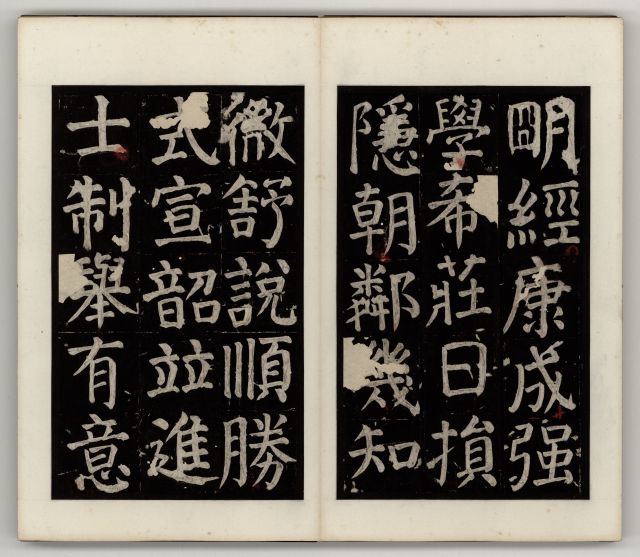 明經康成强
學希莊日損
隱朝鄰幾知
微舒說順勝
式宣韶竝進
士制舉有意